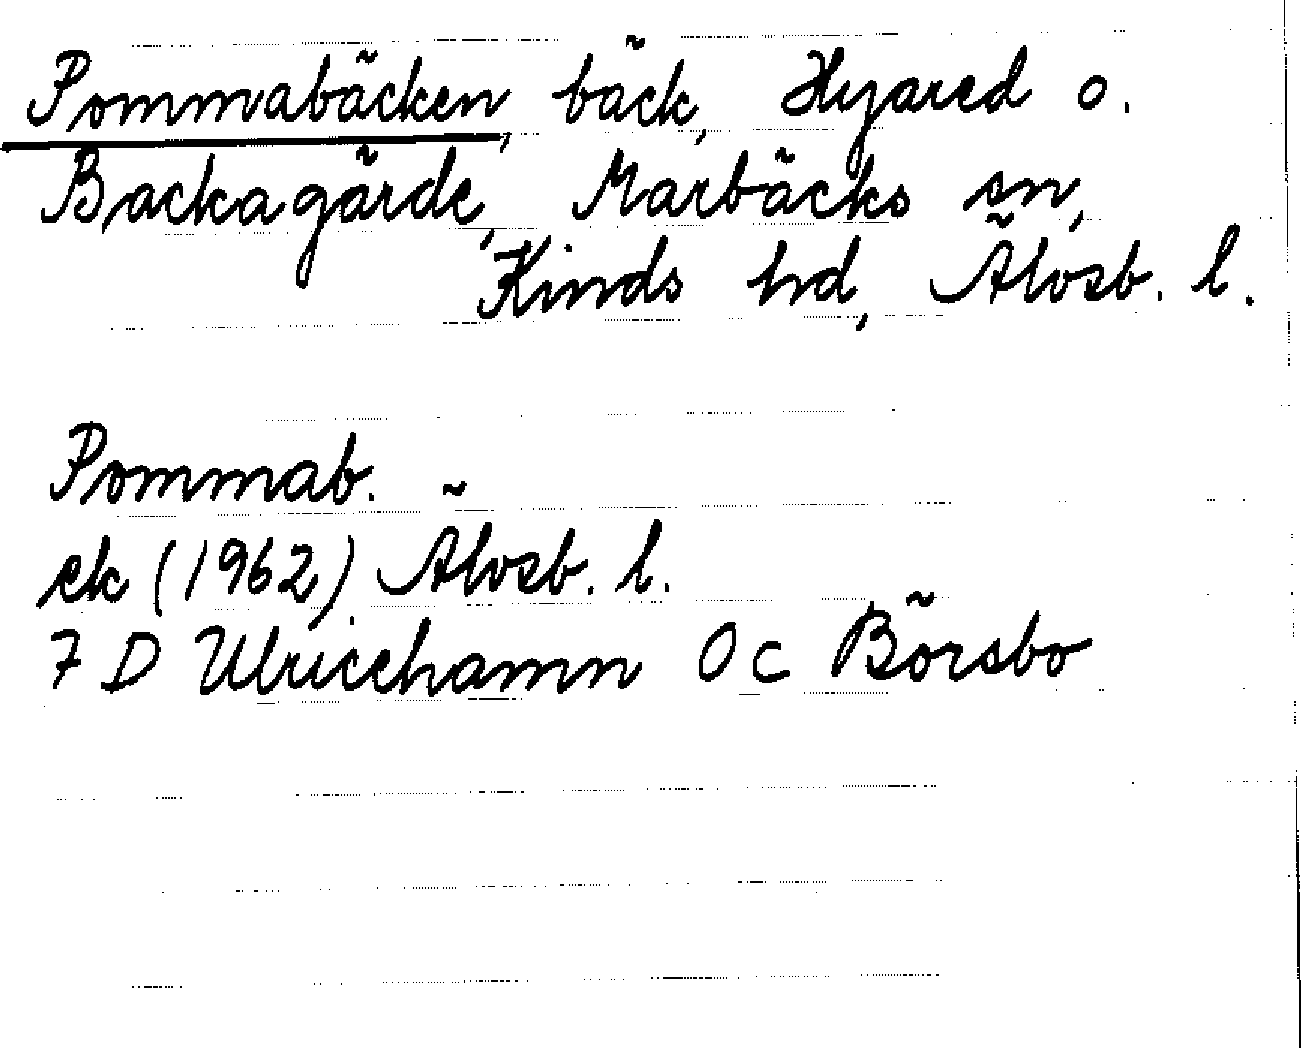 Pommabäcken, bäck, Hyared o.
Backagärde, Marbäcks sn,
Kinds hd, Älvsb. l.
Pommab.
ek (1962) Älvsb. l.
7 D Ulricehamn 0 c Börsbo